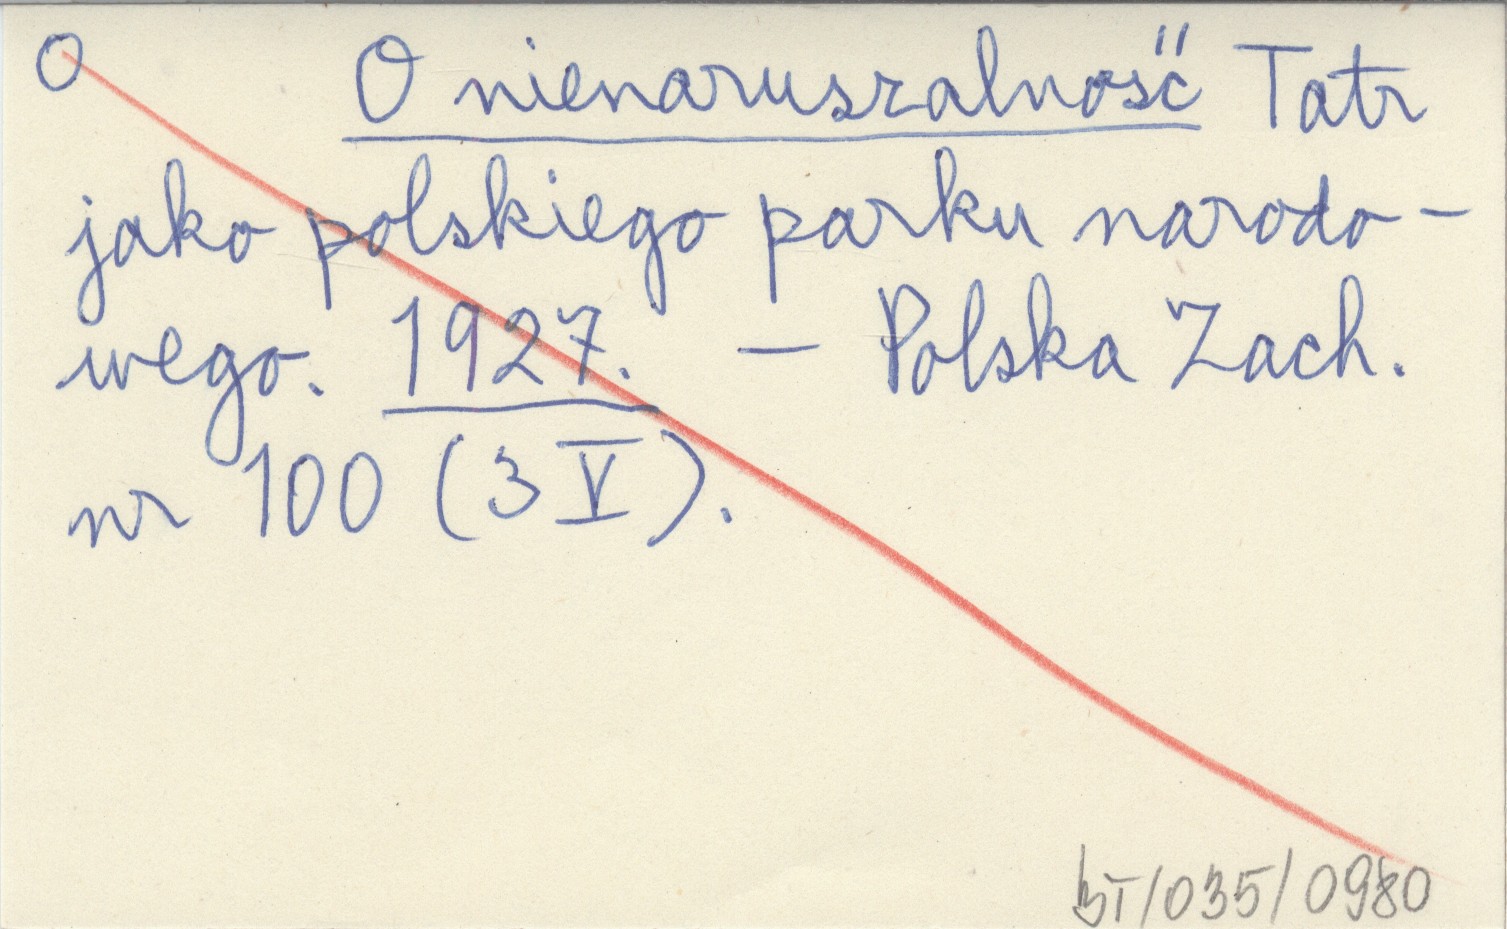 O O nienaruszalność Tatr
jako polskiego parku narodo-
wego. 1927. — Polska Zach.
nr 100 (3 V).
BT/035/0980